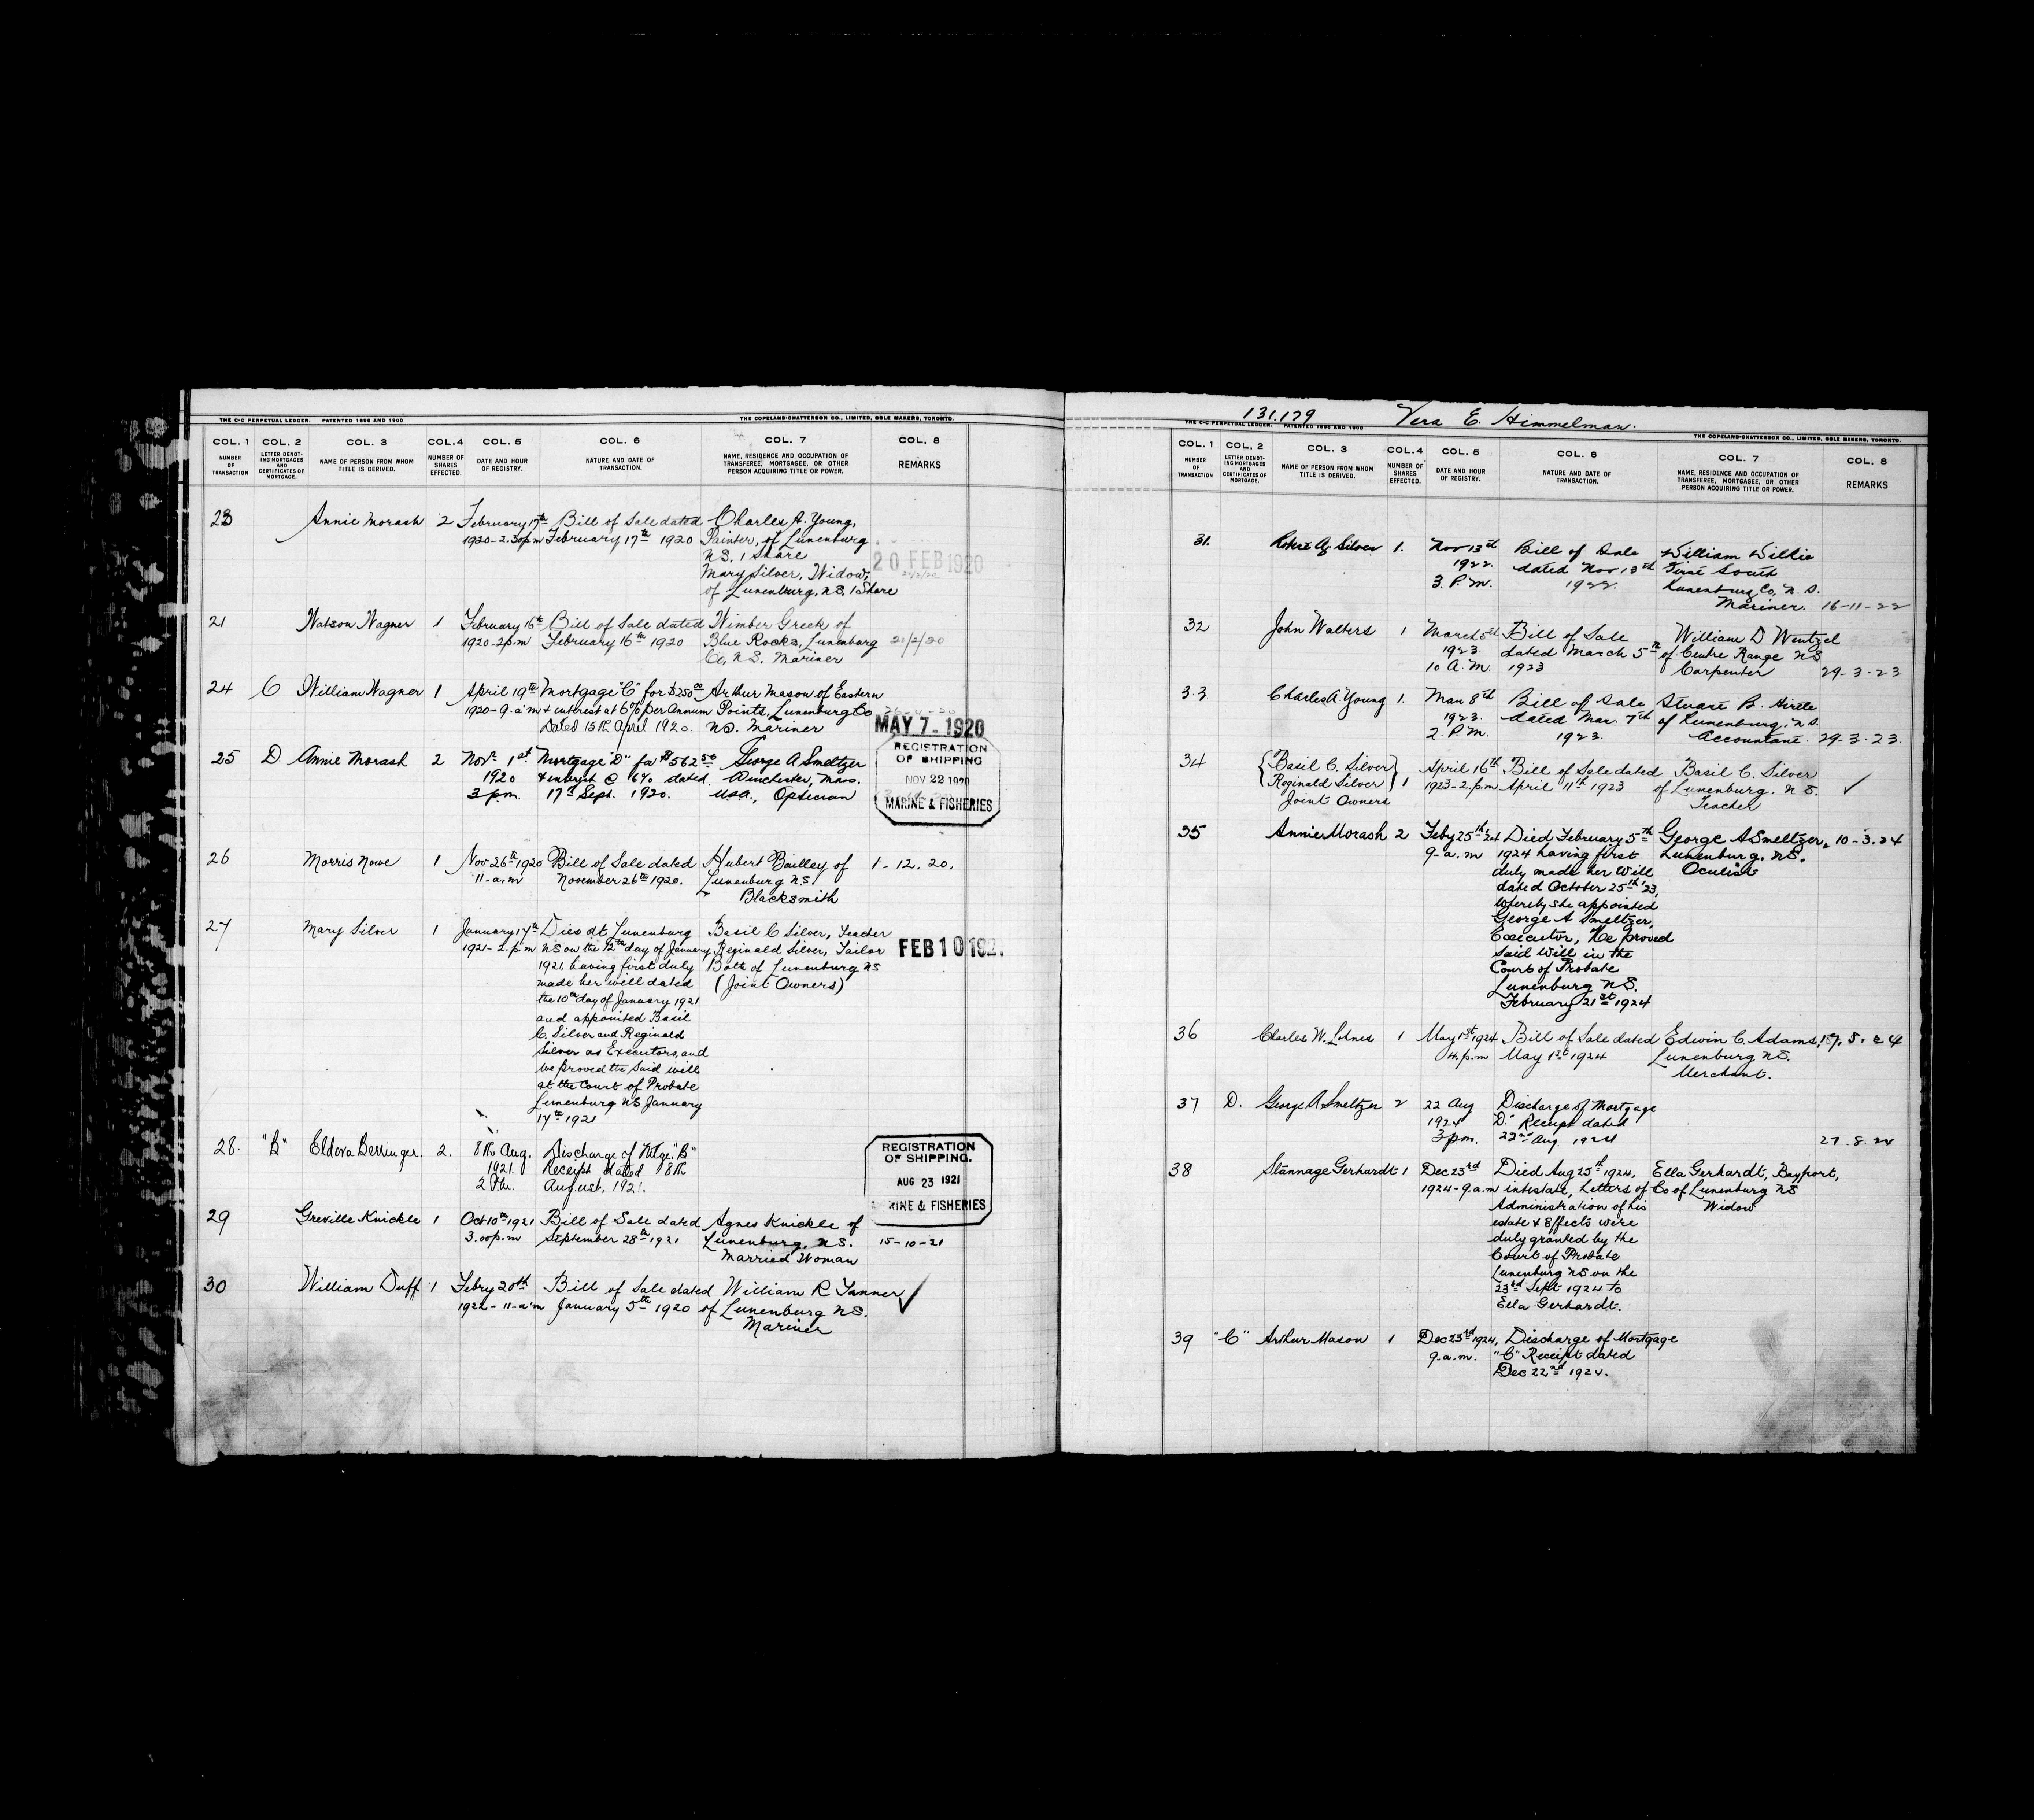 THE C-C PERPETUAL LEDGER. PATENTED 1896 AND 1900 THE COPELAND-CHATTERSON CO., LIMITED, SOLE MAKERS, TORONTO.
COL. 1 COL. 2 COL. 3 COL. 4 COL. 5 COL. 6 COL. 7 COL. 8
NUMBER OF TRANSACTION
LETTER DENOTING MORTGAGES AND CERTIFICATES OF MORTGAGE.
NAME OF PERSON FROM WHOM TITLE IS DERIVED.
NUMBER OF SHARES EFFECTED.
DATE AND HOUR OF REGISTRY.
NATURE AND DATE OF TRANSACTION.
NAME, RESIDENCE AND OCCUPATION OF TRANSFEREE, MORTGAGEE, OR OTHER PERSON ACQUIRING TITLE OR POWER.
REMARKS
23 Annie Morash 2 February 17th Bill of Sale dated Charles A. Young,
1920-2.30pm February 17th 1920 Painter, of Lunenburg
N.S. 1 Share
20 FEB 1920
Mary Silver, Widow,
of Lunenburg, N.S. 1 Share
21 Watson Wagner 1 February 16th Bill of Sale dated Wimber Greek of
1920-2pm February 16th 1920 Blue Rocks, Lunenburg 21/2/20
Co, N.S. Mariner
24 C William Wagner 1 April 19th Mortgage "C" for $250.00 Arthur Mason of Eastern
1920-9-a.m + interest at 6% per Annum Points, Lunenburg Co
Dated 15th April 1920. NS. Mariner
MAY 7-1920
25 D. Annie Morash 2 Nov. 1st Mortgage "D" for $562.50 George A Smeltzer
1920 & interest @ 6% dated Winchester, Mass.
3 p.m. 17th Sept. 1920. USA., Optician
REGISTRATION
OF SHIPPING
NOV 22 1920
MARINE & FISHERIES
26 Morris Nowe 1 Nov 26th 1920 Bill of Sale dated Hubert Bailley of 1-12.20.
11-a.m November 26th 1920. Lunenburg N.S.
Blacksmith
27 Mary Silver 1 January 17th Died at Lunenburg Basil C Silver, Teacher
1921-2.p.m NS on the 12th day of January Reginald Silver, Tailor FEB 10 192.
1921, having first duly Both of Lunenburg NS
made her will dated (Joint Owners)
the 10th day of January 1921
and appointed Basil
C. Silver and Reginald
Silver as Executors, and
we proved the said will
at the Court of Probate
Lunenburg NS January
17th 1921
28. "B" Eldora Berringer. 2. 8th Aug. Discharge of Mtge. "B"
1921. Receipt dated 8th
2 P.m. August, 1921.
REGISTRATION
OF SHIPPING.
AUG 23 1921
RINE & FISHERIES
29 Greville Knickle 1 Oct 10th 1921 Bill of Sale dated Agnes Knickle of
3.00p.m September 28th 1921 Lunenburg, N.S. 15-10-21
Married Woman
30 William Duff 1 Febry 20th Bill of Sale dated William R Tanner ✓
1922-11-a.m January 5th 1920 of Lunenburg N.S.
Mariner
131.179 Vera E. Himmelman.
THE C-C PERPETUAL LEDGER. PATENTED 1896 AND 1900 THE COPELAND-CHATTERSON CO., LIMITED, SOLE MAKERS, TORONTO.
COL. 1 COL. 2 COL. 3 COL. 4 COL. 5 COL. 6 COL. 7 COL. 8
NUMBER OF TRANSACTION
LETTER DENOTING MORTGAGES AND CERTIFICATES OF MORTGAGE.
NAME OF PERSON FROM WHOM TITLE IS DERIVED.
NUMBER OF SHARES EFFECTED.
DATE AND HOUR OF REGISTRY.
NATURE AND DATE OF TRANSACTION.
NAME, RESIDENCE AND OCCUPATION OF TRANSFEREE, MORTGAGEE, OR OTHER PERSON ACQUIRING TITLE OR POWER.
REMARKS
31. Silver 1. Nov 13th Bill of Sale William
1922. dated Nov 13th First South
3. P.M. 1922. Lunenburg Co, N.S.
Mariner. 16-11-22
32 John Walters 1 March 5th Bill of Sale William D Wentzel
1923. dated March 5th of Centre Range NS
10 A.M. 1923 Carpenter 29-3-23
33 Charles A Young 1. Mar 8th Bill of Sale Stuart B. Hirtle
1923. dated Mar. 7th of Lunenburg, N.S.
2. P.M. 1923. Accountant. 29-3-23.
34 {Basil C. Silver} April 16th Bill of Sale dated Basil C. Silver
{Reginald Silver} 1 1923-2.p.m April 11th 1923 of Lunenburg. N.S. ✓
Joint Owners Teacher
35 Annie Morash 2 Feby 25th '24 Died February 5th George A Smeltzer, 10-3.24
9-a.m 1924 having first Lunenburg. N.S.
duly made her Will Oculist
dated October 25th '23,
whereby she appointed
George A Smeltzer,
Executor, He proved
Said Will in the
Court of Probate
Lunenburg N.S.
February 21st 1924
36 Charles W. Lohnes 1 May 1st 1924 Bill of Sale dated Edwin C. Adams, 17.5.24
4.p.m May 1st 1924 Lunenburg N.S.
Merchant.
37 D. George A Smeltzer 2 22 Aug Discharge of Mortgage
1924 "D." Receipt dated
3 pm. 22nd Aug. 1924 27.8.24
38 Stannage Gerhardt 1 Dec 23rd Died Aug 25th, 1924, Ella Gerhardt, Bayport,
1924-9.a.m intestate, Letters of Co of Lunenburg NS
Administration of his Widow
estate & Effects were
duly granted by the
Court of Probate
Lunenburg NS on the
23rd Sept 1924 to
Ella Gerhardt.
39 "C" Arthur Mason 1 Dec 23rd 1924, Discharge of Mortgage
9-a.m. "C" Receipt dated
Dec 22nd 1924.